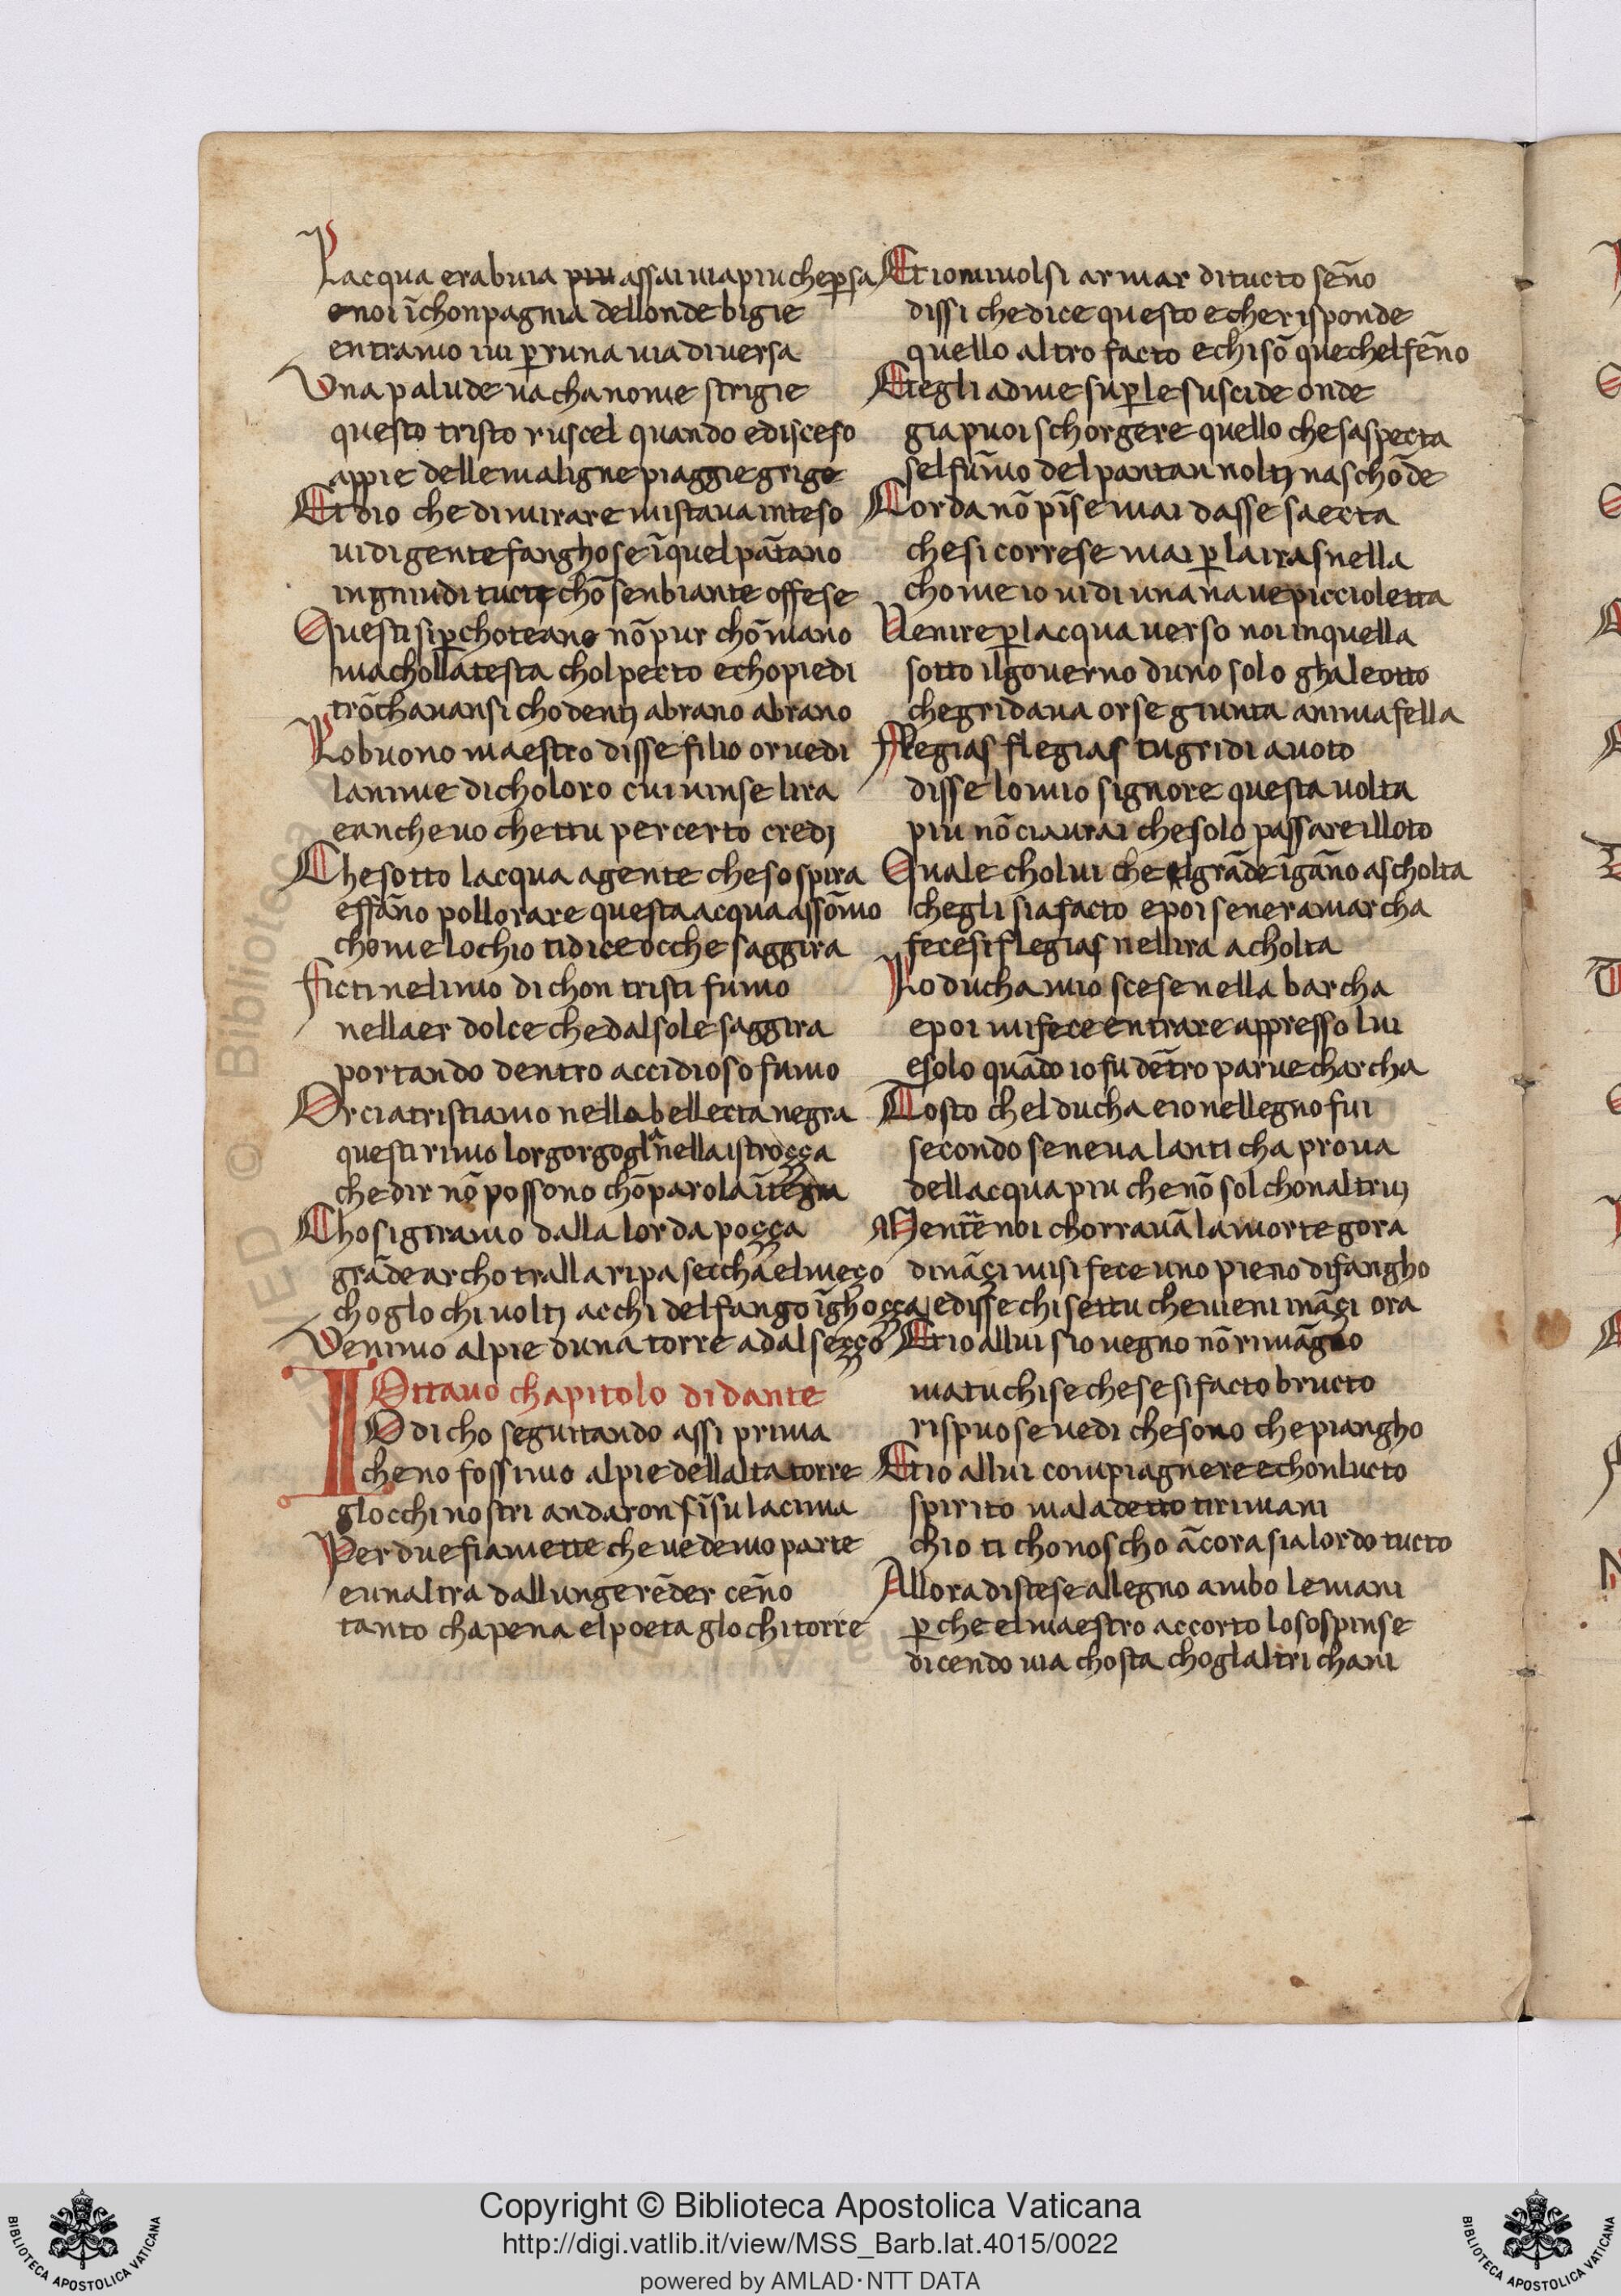 Lacqua era buia piu assai uia piu che persa
e noi ī chonpagnia dellonde bigie
entramo iui p runa uia diuersa
Vna palude ua cha nome strigie
questo tristo ruscel quando e disceso
appie delle maligne piaggie grige
Et dio che di mirare mi staua inteso
uidi gente fanghose ī quel pātano
ingniudi tucte chō senbiante offese
Questi si p choteano nō pur chō mano
ma cholla testa chol pecto e cho piedi
trōchauansi cho dentj a brano a brano
Lo buono maestro disse filio or uedi
lanime di choloro cui uinse lira
e anche uo chettu per certo credj
Che sotto lacqua a gente che sospira
effāno pollorare questa acqua assōmo
chome lochio ti dice ocche saggira
Ficti nel limo dichon tristi fumo
nellaer dolce che dal sole saggira
portando dentro accidioso fumo
Or ci atristiamo nella bellecta negra
questi rimo lor gorgoglā nella istroçça
che dir nō possono chō parola ītegra
Chosi giramo dalla lorda poçça
grāde archo tralla ripa seccha el meço
choglochi uoltj acchi del fango īghoçça
Venimo al pie duna torre adal seçço
Ottauo chapitolo di dante
IO dicho seguitando assi prima
che no fossimo al pie dellalta torre
glocchi nostri andaron sī su la cima
Per due fiamette che uedemo parte
e unaltra dallunge rēder cēno
tanto chapena el poeta glochi torre
Et io mi uolsi ar mar di tucto sēno
dissi che dice questo e che risponde
quello altro facto e chi sō que chel fēno
Et egli ad me sup le suscide onde
gia puoi schorgere quello che saspecta
sel fūmo del pantan nol tj naschōde
Corda nō pīse mai dasse saecta
che si corresse mai p laira snella
chome io uidi una naue piccioletta
Uenire p lacqua uerso noi inquella
sotto il gouerno duno solo ghaleotto
che gridaua or se giunta anima fella
Flegias flegias tu gridi a uoto
disse lo mio signore questa uolta
piu nō ci aurai che solo passare il loto
Quale cholui che el grāde īgāno ascholta
che gli sia facto e poi se ne ramarcha
fecesi flegias nellira acholta
Lo ducha mio scese nella barcha
e poi mi fece entrare appresso lui
e solo quādo io fu dētro parue charcha
Tosto chel ducha e io nel legno fui
secondo se ne ua lanticha proua
dellacqua piu che nō sol chon altruj
Mentre noi chorrauā la morte gora
dināçi mi si fece uno pieno di fangho
e disse chi settu che uieni ināçi ora
Et io allui sio uegno nō rimāgno
ma tu chi se che se si facto bructo
rispuose uedi che sono che piangho
Et io allui com piagnere e chon lucto
spirito maladetto ti rimani
chio ti chonoscho ācora sia lordo tucto
Allora distese allegno ambo le mani
p che el maestro accorto lo sospinse
dicendo uia chosta choglaltri chani
Copyright © Biblioteca Apostolica Vaticana
http://digi.vatlib.it/view/MSS_Barb.lat.4015/0022
powered by AMLAD·NTT DATA
BIBLIOTECA APOSTOLICA VATICANA
BIBLIOTECA APOSTOLICA VATICANA